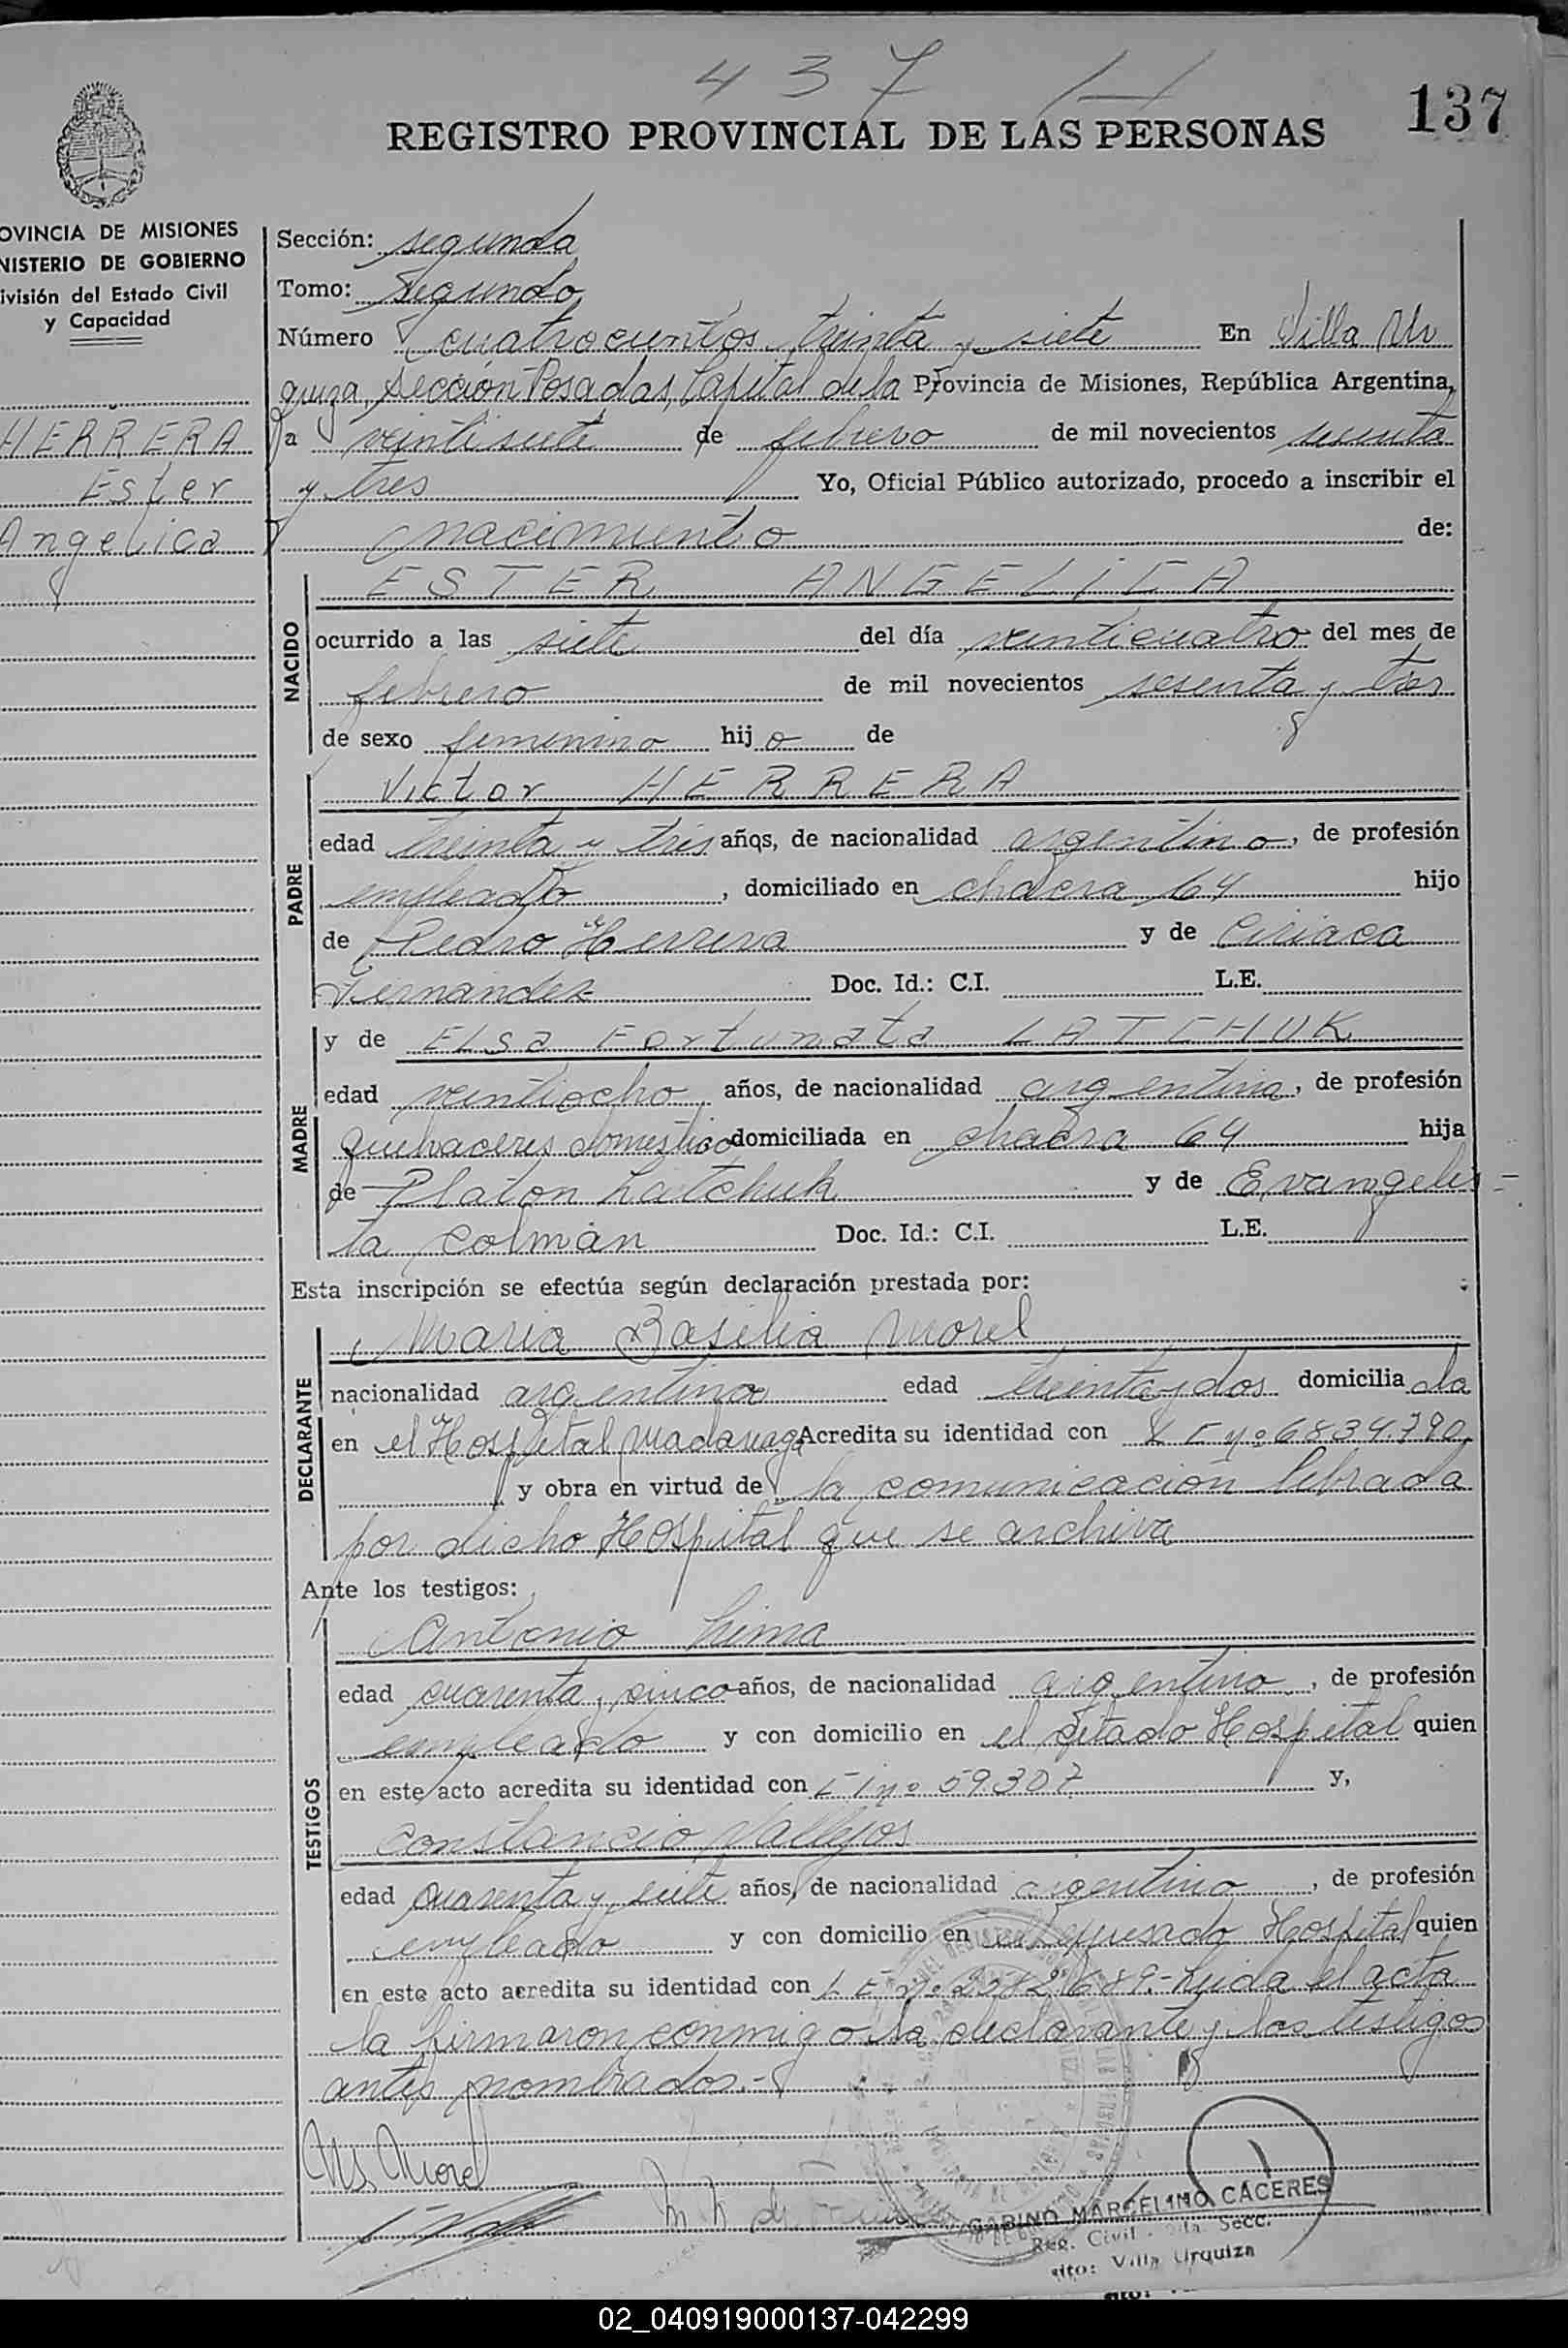 437
137
REGISTRO PROVINCIAL DE LAS PERSONAS
OVINCIA DE MISIONES
NISTERIO DE GOBIERNO
ivisión del Estado Civil
y Capacidad
HERRERA
Ester
Angelica
Sección: segunda
Tomo: Segundo
Número cuatrocientos treinta y siete En Villa Ur
quiza, Sección Posadas, Capital de la Provincia de Misiones, República Argentina,
a veintisiete de febrero de mil novecientos sesenta
y tres Yo, Oficial Público autorizado, procedo a inscribir el
nacimiento de:
NACIDO
ESTER ANGELICA
ocurrido a las siete del día veinticuatro del mes de
febrero de mil novecientos sesenta y tres
de sexo femenino hijo de
PADRE
Victor HERRERA
edad treinta y tres años, de nacionalidad argentino, de profesión
empleado, domiciliado en chacra 64 hijo
de Pedro Herrera y de Ciriaca
Fernandez Doc. Id.: C.I. L.E.
MADRE
y de Elsa Fortunata LATCHUK
edad veintiocho años, de nacionalidad argentina, de profesión
quehaceres domestico domiciliada en chacra 64 hija
de Platon Latchuk y de Evangelis=
ta Colmán Doc. Id.: C.I. L.E.
Esta inscripción se efectúa según declaración prestada por:
DECLARANTE
Maria Basilia Morel
nacionalidad argentina edad treinta y dos domicilia da
en el Hospital Madariaga Acredita su identidad con nº 6834.790
y obra en virtud de la comunicación librada
por dicho Hospital que se archiva
Ante los testigos:
TESTIGOS
Antonio Lima
edad cuarenta y cinco años, de nacionalidad argentino, de profesión
empleado y con domicilio en el citado Hospital quien
en este acto acredita su identidad con nº 59.307 y,
Constancio Vallejos
edad cuarenta y siete años, de nacionalidad argentino, de profesión
empleado y con domicilio en el expresado Hospital quien
en este acto acredita su identidad con L E nº 689.- Leida el acta
la firmaron conmigo la declarante y los testigos
antes nombrados.-
Morel
GABINO MARCELINO CACERES
Reg. Civil Secc.
Villa Urquiza
02_040919000137-042299